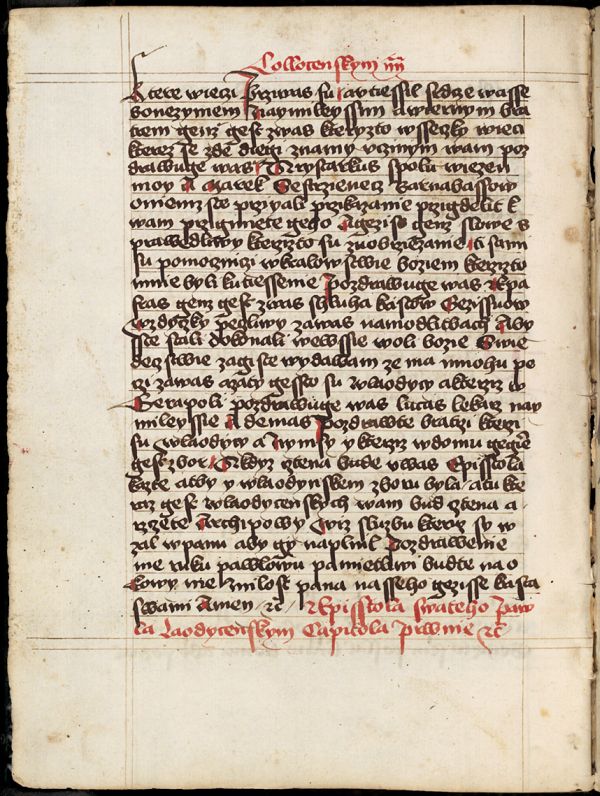 Kolocenskym iiii
ktere wieczi przi was su a vtiessil srdcze wasse
s onezymem naymileyssim a wiernym bra
trem genz gest z was kteryzto wsseczky wieci
kterez se zde diegi znamy vczinym wam poz
drawuge was Arystarkus spolu wiezen
moy A Marek Sestrzienecz Barnabassow
o niemz ste przigali przikazanie przigdelit k
wam przigmete geho A gezis genz slowe s
prawedliwy kterzizto su z uobrziezanie ti sami
su pomoczniczi w kralowstwie boziem kterzizto
mnie byli k utiessenie Pozdrawuge was Epa
fras genz gest z was sluha kristow Gezissuow
wzdyczky peczliwy za was na modlitbach Aby
sste stali dokonali we wssie woli bozie Swie
decztwie zagiste wydawam ze ma mnohu pe
czi za was a za ty gessto su w laodycy a kterziz w
Gerapoli pozdrawuge was lucas lekarz nay
mileyssie A demas Pozdrawte bratrzi kterzi
su w laodycy a nymfy y kterziz w domu gegie
gest zbor A kdyz cztena bude v was Episstola
kazte at by y w laodynskem zboru byla a tu kte
raz gest w laodycenskych wam bud cztena a
rzczete Archipowy Wiz sluzbu kteruz sy w
zal w panu aby gy naplnil Pozdrawenie
me ruku pawlowu pamietliwi budte na o
kowy me z milost pana nasseho gezisse krista
s wami Amen etc Episstola swateho Paw
la Laodycenskym Capitola prwnie etc